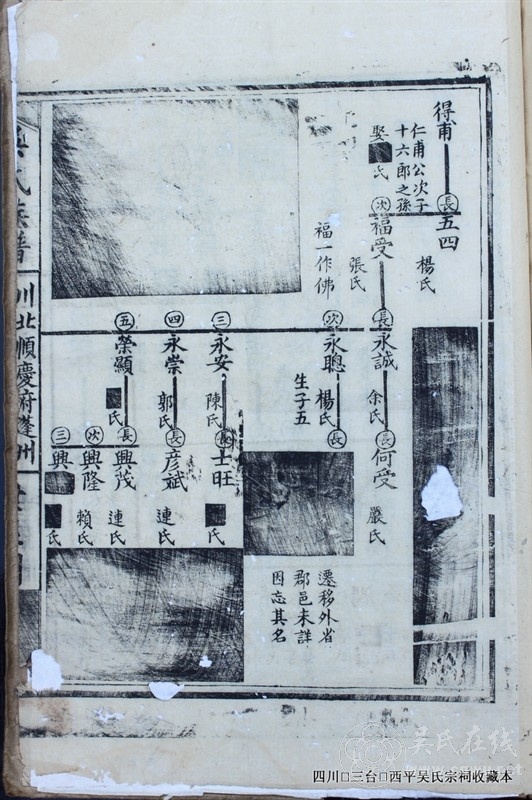 得甫
仁甫公次子
十六郎之孫
娶■氏
長
五四
楊氏
次
福受
張氏
福一作佛
長
永誠
余氏
長
何受
嚴氏
次
永聰
楊氏
生子五
長
遷移外省
郡邑未詳
因忘其名
三
永安
陳氏
長
士旺
■氏
四
永崇
郭氏
長
彦斌
連氏
五
榮顯
■氏
長
興茂
連氏
次
興隆
賴氏
三
興
氏
吳氏族譜
川北順慶府蓬州
吴氏在线
四川□三台□西平吴氏宗祠收藏本